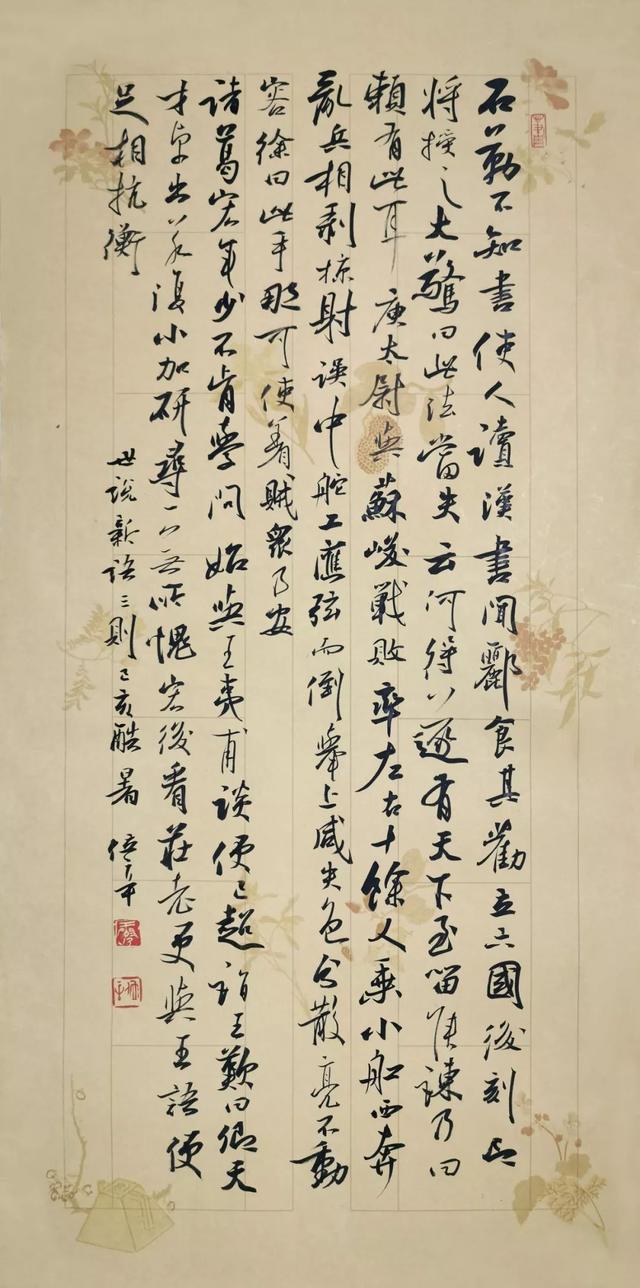 石勒不知書使人讀漢書聞酈食其勸立六國後刻印
将授之大驚曰此法當失云何得以遂有天下至留侯諫乃曰
賴有此耳 庾太尉與蘇峻戰敗率左右十餘人乘小船西奔
亂兵相剥掠射誤中舵工應弦而倒舉上咸失色分散亮不動
容徐曰此手那可使着賊衆乃安
諸葛宏年少不肯學問始與王夷甫談便已超詣王歎曰卿天
才卓出若復小加研尋一无所愧宏後看莊老更與王語便
足相抗衡
世說新語三則己亥酷暑